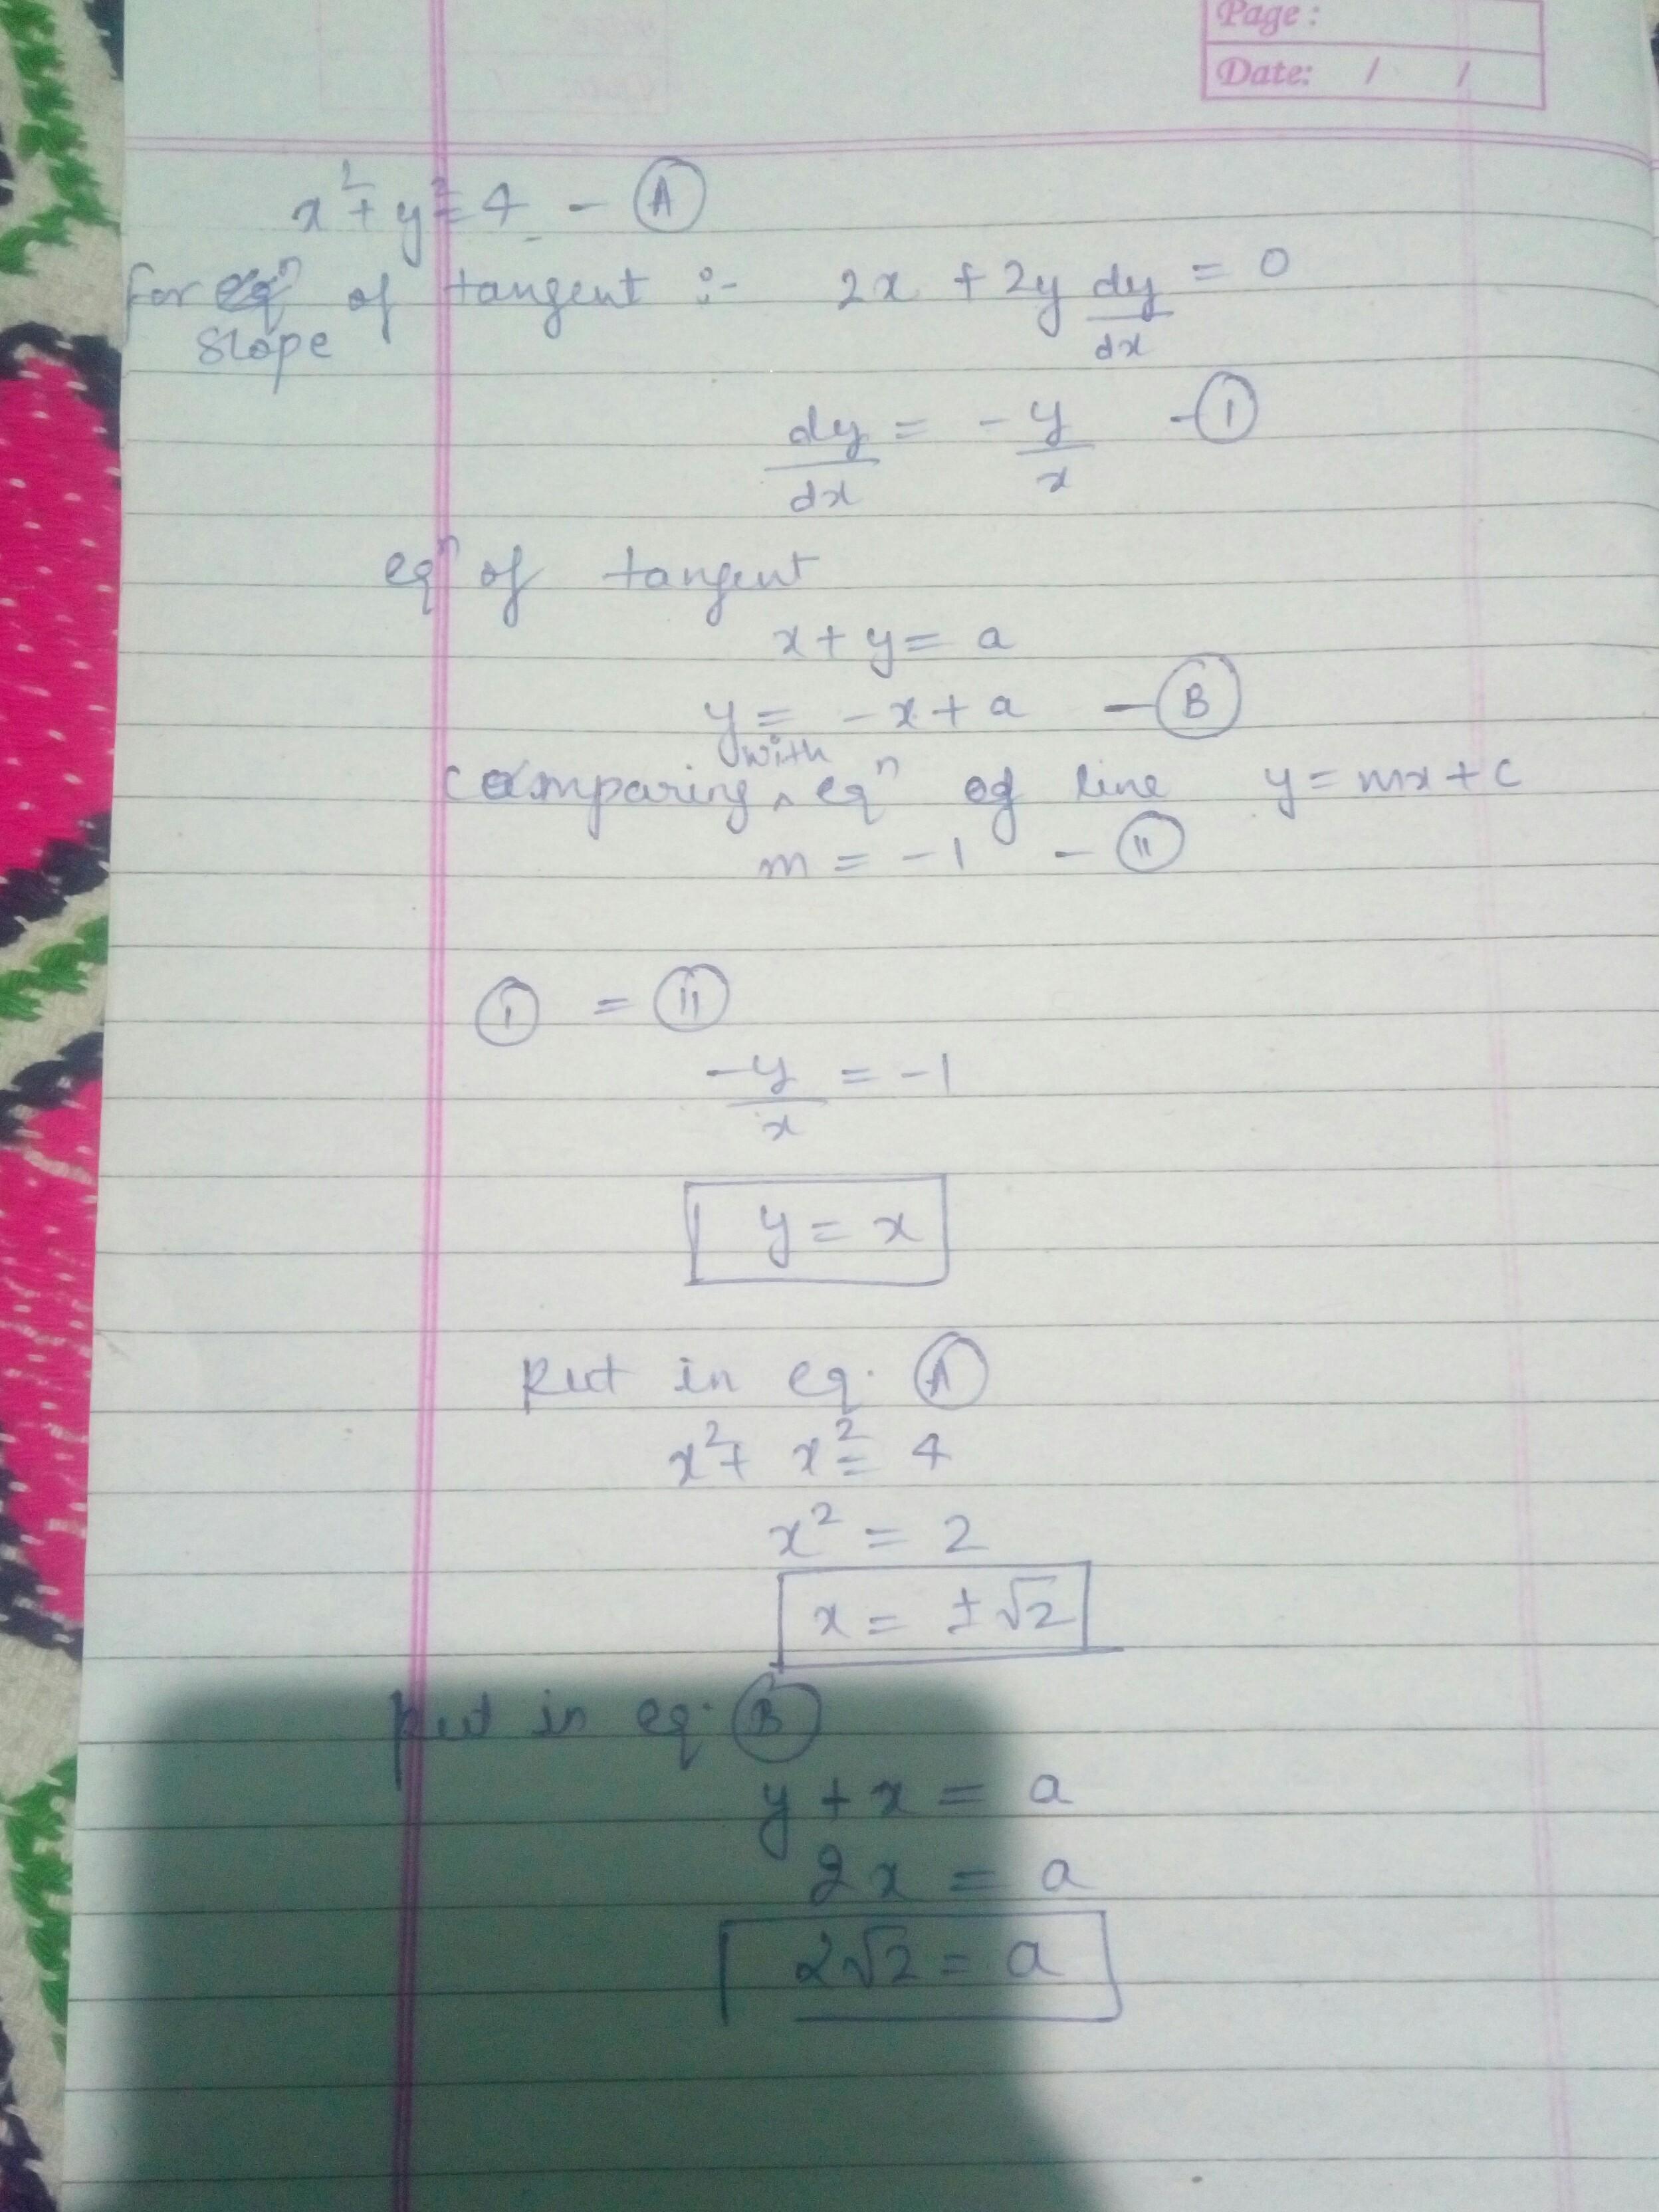 Page :
Date: / /
x² + y² = 4 - (A)
for slope of tangent :- 2x + 2y dy/dx = 0
dy/dx = - y/x - (I)
eqⁿ of tangent
x + y = a
y = - x + a - (B)
comparing with eqⁿ of line y = mx + c
m = - 1 - (II)
(I) = (II)
-y/x = - 1
y = x
Put in eq. (A)
x² + x² = 4
x² = 2
x = ± √2
Put in eq. (B)
y + x = a
2x = a
2√2 = a